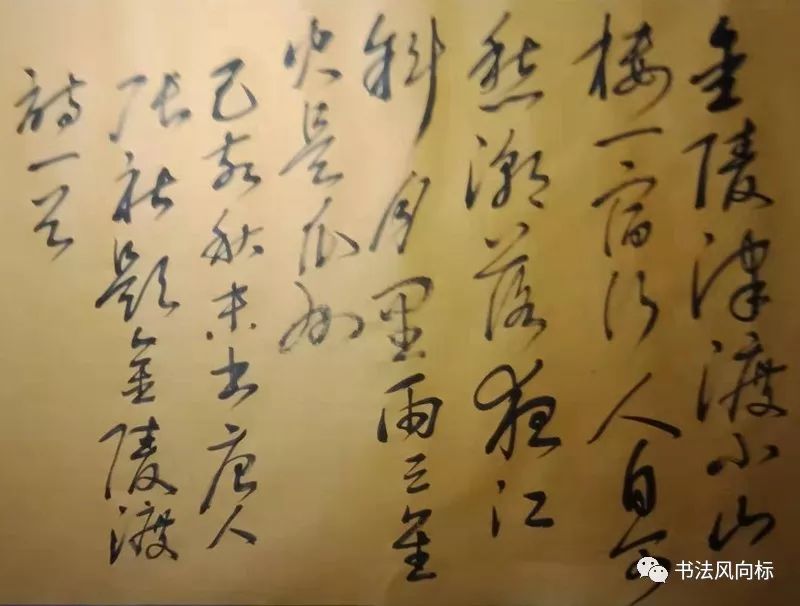 金陵津渡小山
樓一宿行人自可
愁潮落夜江
斜月里兩三星
火是瓜州
己亥秋末書唐人
張祜題金陵渡
詩一首
书法风向标